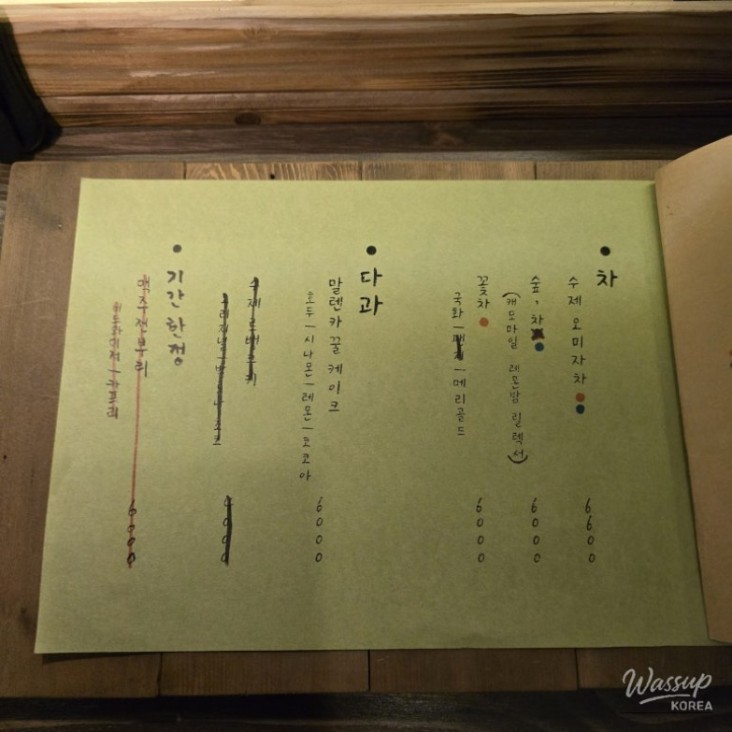 차
수제 오미자차
6600
숲, 차
(캐모마일 레몬밤 릴렉서)
6000
꽃차
국화 | 메리골드
6000
다과
말렌카 꿀 케이크
호두 | 시나몬 | 레몬 | 코코아
6000
기간 한정
맥주 잰부리
6000
Wassup
KOREA